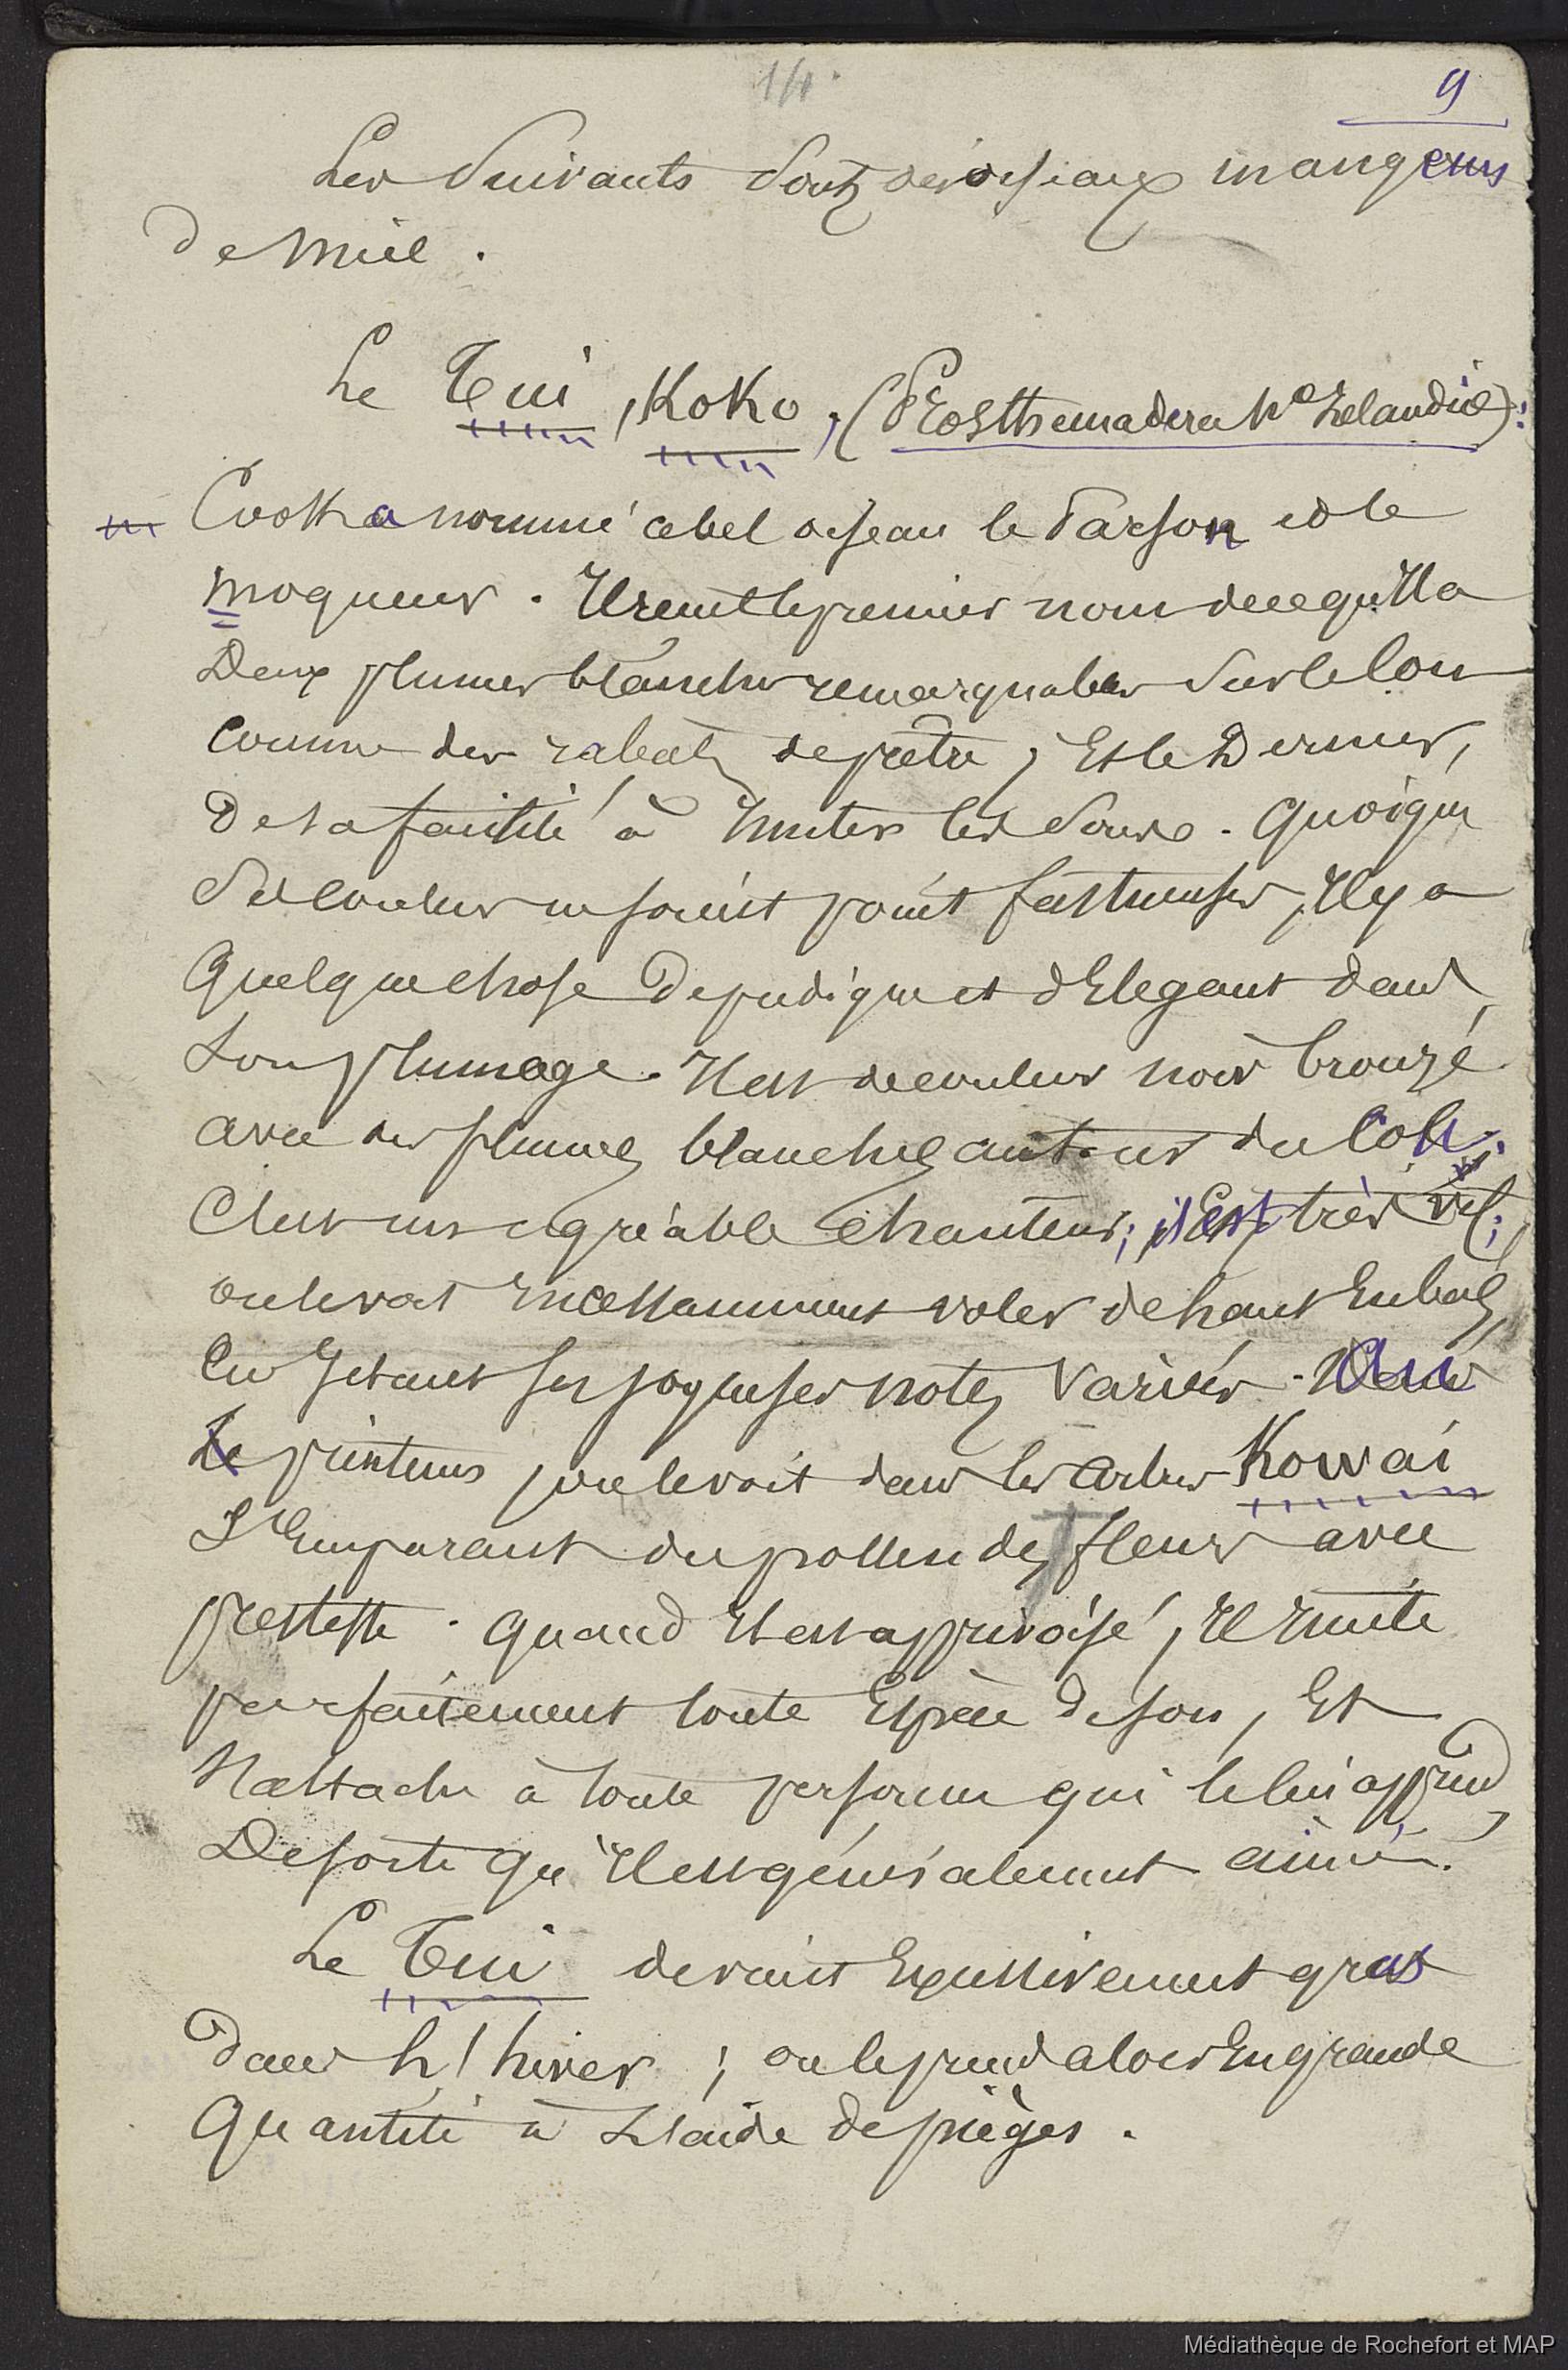 14.
9
Les Suivants Sont des oiseaux mangeurs
De Miel.
Le Tui, Koko, (Prosthemadera Ne Zelandiæ):
Cook a nommé ce bel oiseau le Parson et le
Moqueur. Il reçut le premier nom de ce qu'il a
Deux plumes blanches remarquables Sur le Cou
Comme des rabats de prêtre, Et le Dernier,
De sa facilité à Imiter les Sons. Quoique
Ses couleurs ne soient point fastueuses, Il y a
Quelque chose De pudique et d'Elegant dans
Son plumage. Il est de couleur noir bronzé
avec des plumes blanches autour du Cou.
C'est un agréable chanteur; il est très vif;
on le voit Incessamment voler de haut En bas,
En Jetant ses joyeuses notes Variées. Au
printems, on le voit dans les arbres Kowai
S'Emparant du pollen des fleurs avec
prestesse. Quand Il est apprivoisé, Il Imite
parfaitement toute Espèce de son, Et
S'attache à toute personne qui le lui apprend,
De sorte qu'Il est généralement aimé.
Le Tui devient Excessivement gras
Dans l'hiver; on le prend alors En grande
Quantité à L'aide de pièges.
Médiathèque de Rochefort et MAP